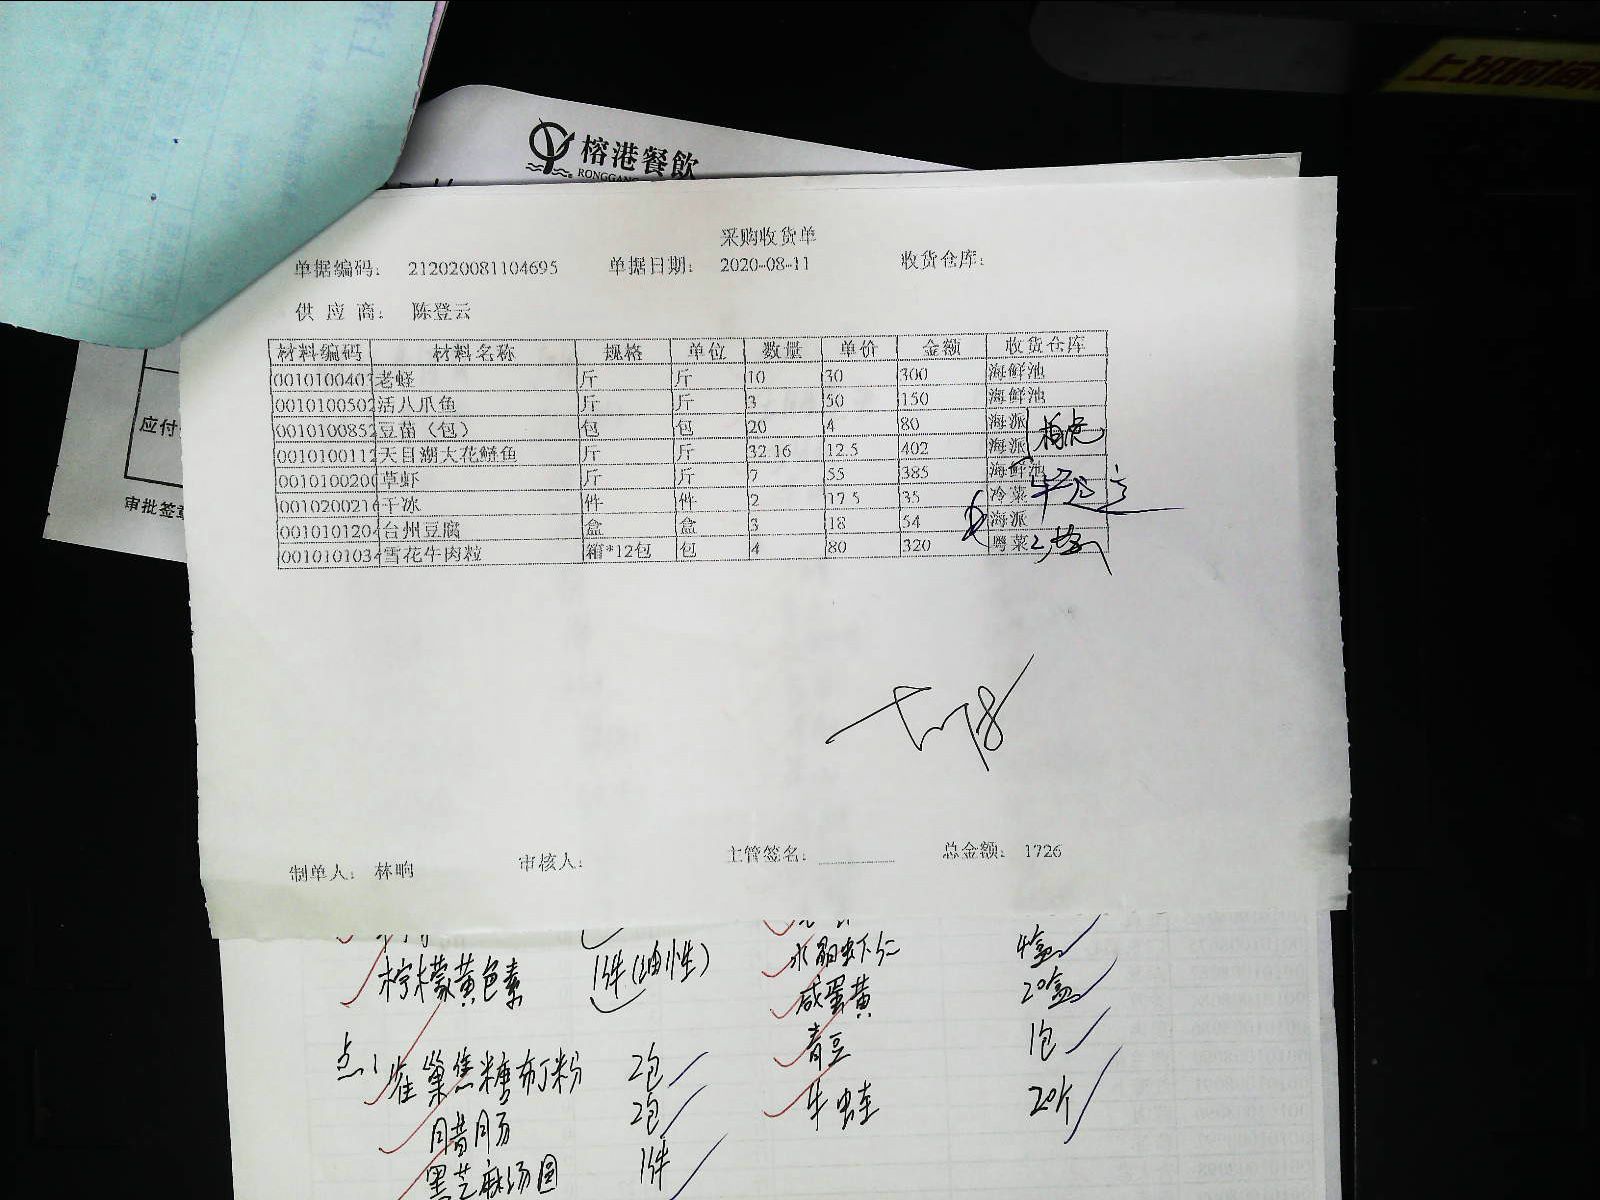 上班时间
榕港餐飲
RONGGANG
采购收货单
单据编码： 212020081104695 单据日期： 2020-08-11 收货仓库：
供 应 商： 陈登云
材料编码 材料名称 规格 单位 数量 单价 金额 收货仓库
0010100403 老蛏 斤 斤 10 30 300 海鲜池
0010100502 活八爪鱼 斤 斤 3 50 150 海鲜池
0010100852 豆苗（包） 包 包 20 4 80 海派
0010100112 天目湖大花鲢鱼 斤 斤 32.16 12.5 402 海派
0010100200 草虾 斤 斤 7 55 385 海鲜池
0010200216 干冰 件 件 2 17.5 35 冷菜
0010101204 台州豆腐 盒 盒 3 18 54 海派
0010101034 雪花牛肉粒 箱*12包 包 4 80 320 粤菜
应付
审批签章
制单人： 林响 审核人： 主管签名： 总金额： 1726
柠檬黄色素 1件(油性) 水晶虾仁 4盒
咸蛋黄 20盒
点： 雀巢焦糖布丁粉 2包 青豆 1包
腊肠 2包 牛蛙 20个
黑芝麻汤圆 1件